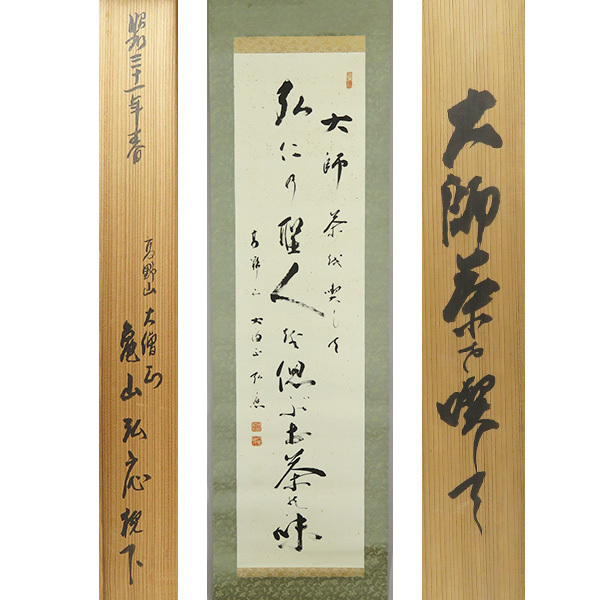 昭和三十一年春
高野山 大僧正
亀山弘応猊下
大師茶越喫して
弘仁乃聖人越偲ぶお茶の味
高野山 大僧正 弘應
大師茶を喫して